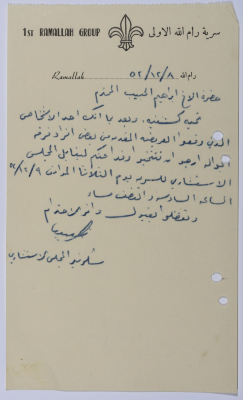 1ST RAMALLAH GROUP
سرية رام الله الاولى
Ramallah
رام الله ٥٢/١٢/٨
حضرة الاخ ابراهيم الحبيب المحترم
تحية كشفية، وبعد بما انك احد الاشخاص
الذي وقعوا العريضة المقدمة من بعض افراد فرقة
الجوالة ارجو ان تتحضر لتقابل المجلس
الاستشاري للسرية يوم الثلاثاء الموافق ٥٢/١٢/٩
الساعة السادسة والنصف مساء
وتفضلوا بقبول وافر الاحترام
سكرتير المجلس الاستشاري